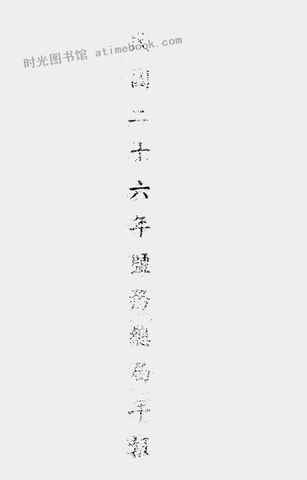 时光图书馆 atimebook.com
民國二十六年鹽務總局年報